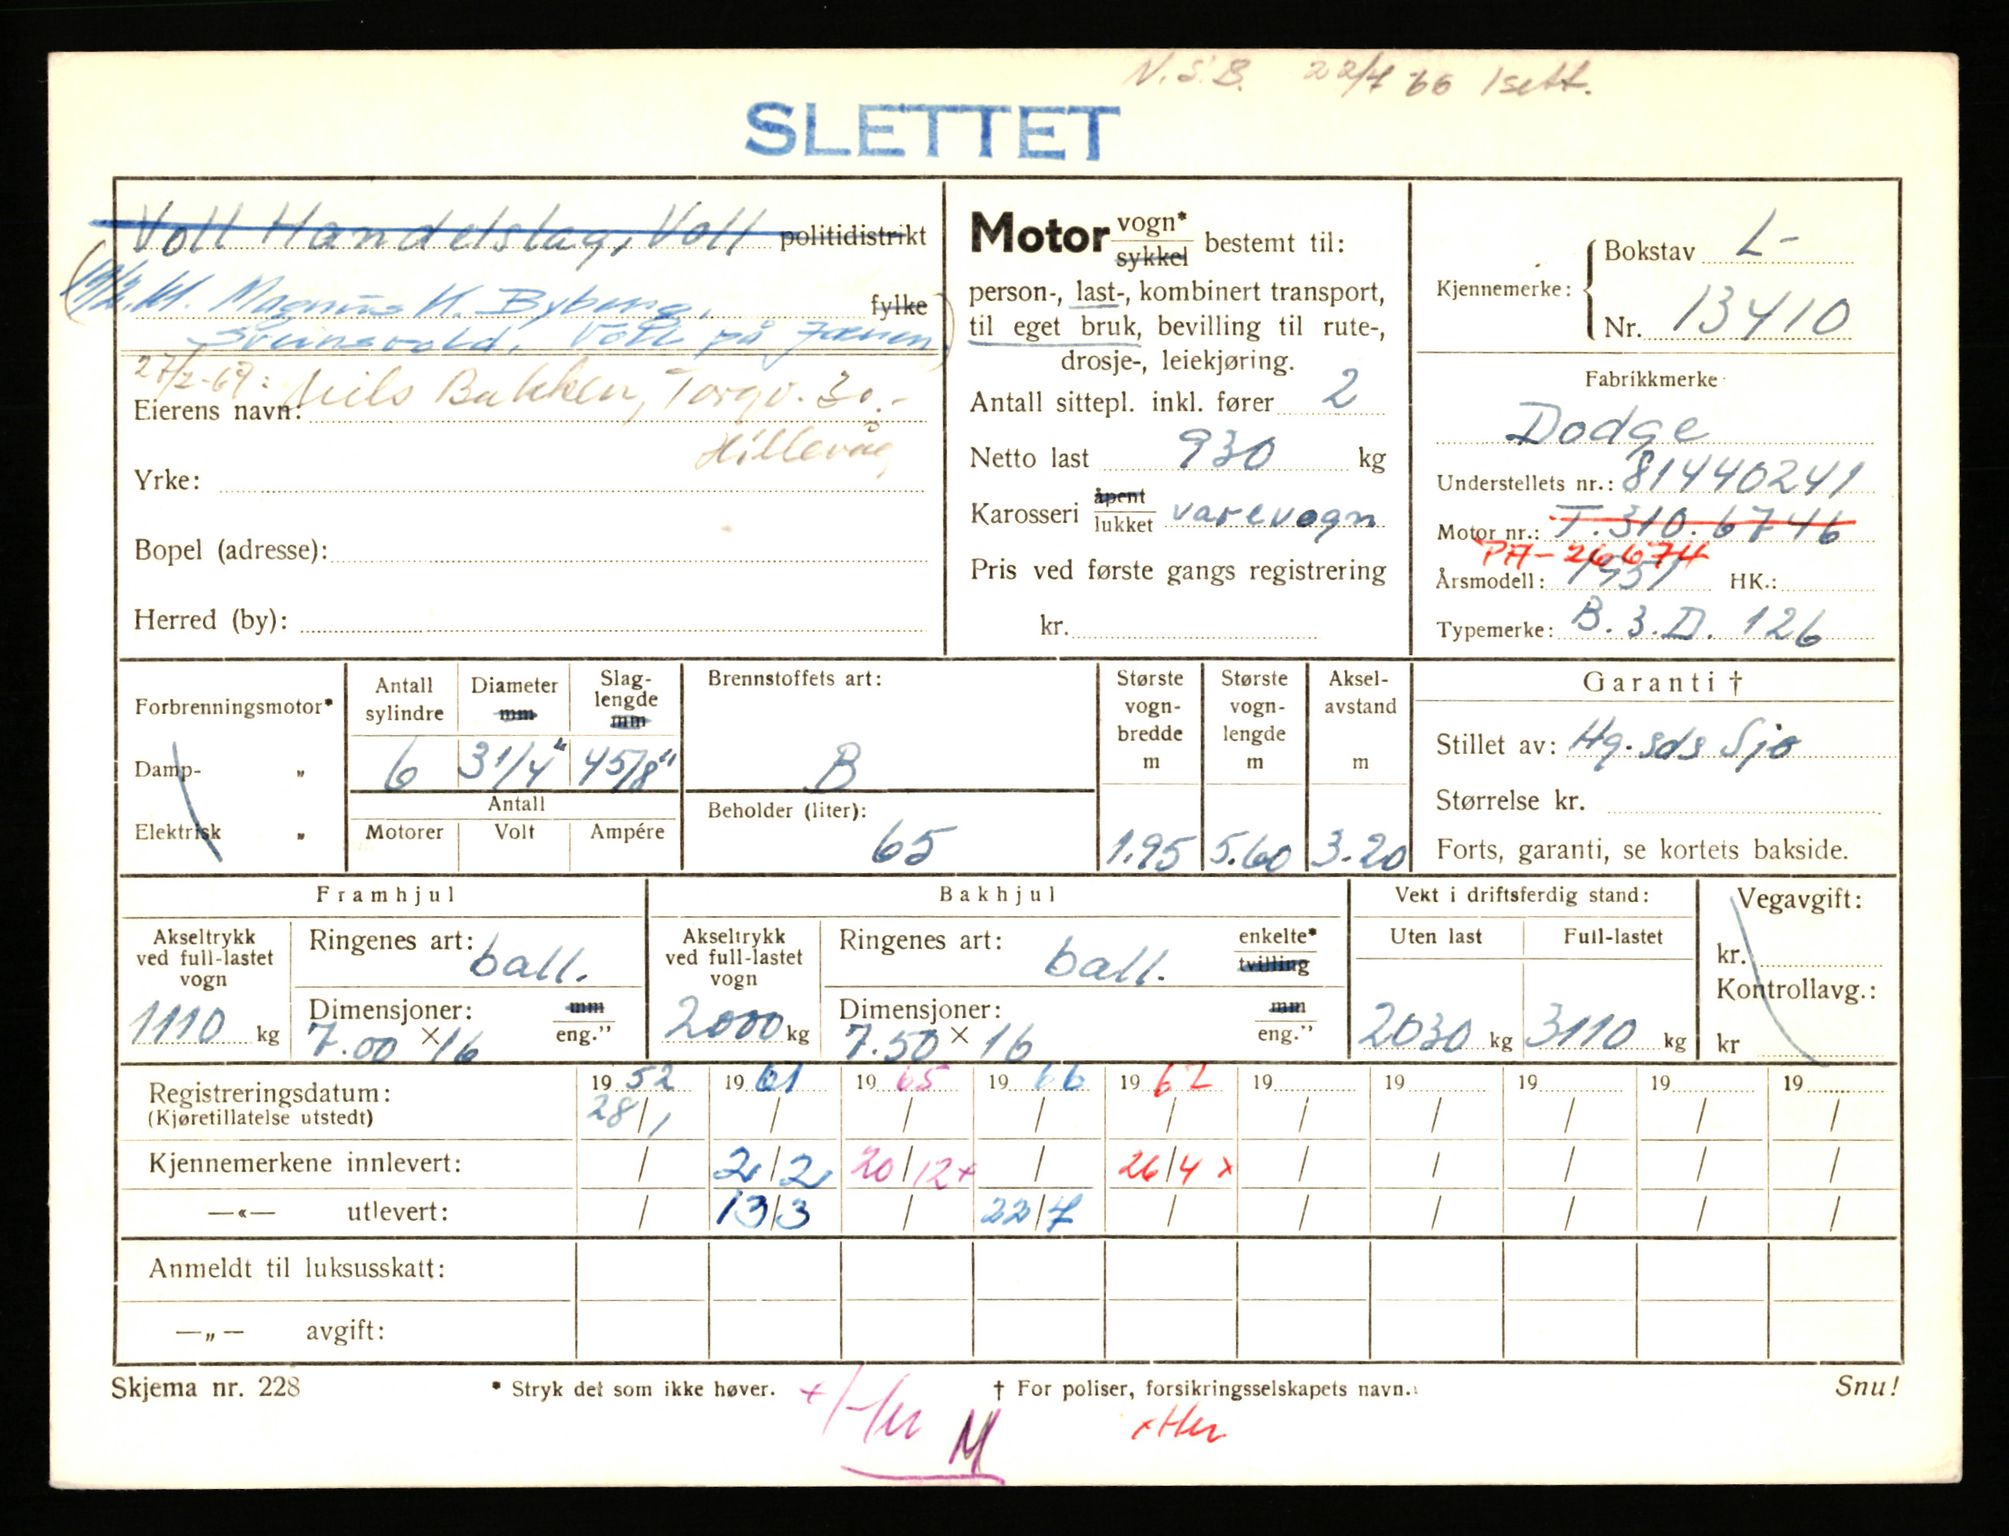 N.S.B. 22/7 66 1 sett.
SLETTET
Voll Handelslag, Voll politidistrikt
Magnus H. Byberg, fylke
Voll på Jæren
27/2-67: Nils Bakken, Torgv. 30.-
Eierens navn:
Hillevåg
Yrke:
Bopel (adresse):
Herred (by):
Motor vogn* sykkel bestemt til:
person-, last-, kombinert transport,
til eget bruk, bevilling til rute-,
drosje-, leiekjøring.
Antall sittepl. inkl. fører 2
Netto last 930 kg
Karosseri åpent lukket varevogn
Pris ved første gangs registrering
kr.
Kjennemerke: Bokstav L-
Nr. 13410
Fabrikkmerke
Dodge
Understellets nr.: 81440241
Motor nr.: T. 310. 6746
PA-26674
Årsmodell: 1951 HK.:
Typemerke: B. 3. D. 126
Forbrenningsmotor*
Damp- „
Elektrisk „
Antall sylindre 6
Diameter mm 3 1/4"
Slag-lengde mm 4 5/8"
Antall
Motorer Volt Ampére
Brennstoffets art:
B
Beholder (liter):
65
Største vogn-bredde m 1.95
Største vogn-lengde m 5.60
Aksel-avstand m 3.20
Garanti †
Stillet av: Hg.sds Sjø
Størrelse kr.
Forts, garanti, se kortets bakside.
Framhjul
Akseltrykk ved full-lastet vogn
1110 kg
Ringenes art: ball.
Dimensjoner: mm eng."
7.00 × 16
Bakhjul
Akseltrykk ved full-lastet vogn
2000 kg
Ringenes art: ball. enkelte* tvilling
Dimensjoner: mm eng."
7.50 × 16
Vekt i driftsferdig stand:
Uten last Full-lastet
2030 kg 3110 kg
Vegavgift:
kr.
Kontrollavg.:
kr
Registreringsdatum: 19 52 19 61 19 65 19 66 19 67 19 19 19 19 19
(Kjøretillatelse utstedt) 28/1 / / / / / / / / /
Kjennemerkene innlevert: / 2/2 20/12 x / 26/4 x / / / / /
—«— utlevert: / 13/3 / 22/7 / / / / / /
Anmeldt til luksusskatt:
—„— avgift:
Skjema nr. 228 * Stryk det som ikke høver. † For poliser, forsikringsselskapets navn. Snu!
M